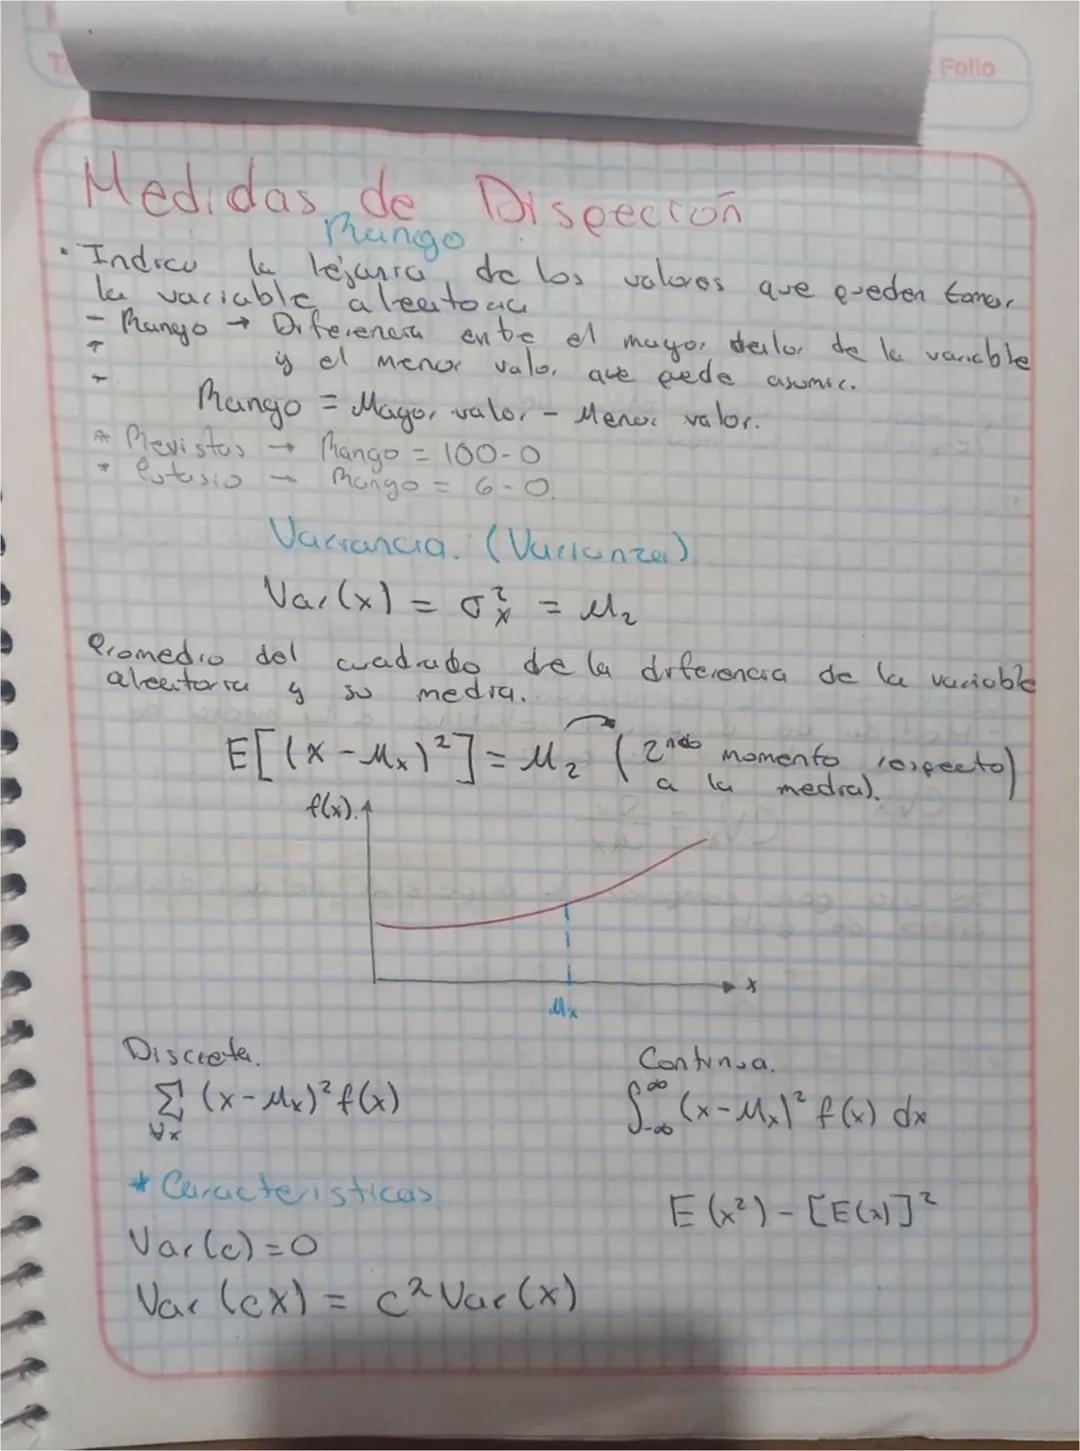 Folio
Medidas de Dispección
Rango
• Indica la lejanía de los valores que pueden tomar
la variable aleatoria
- Rango → Diferencia entre el mayor valor de la variable
y el menor valor que puede asumir.
Rango = Mayor valor - Menor valor.
* Revistas → Rango = 100-0
* Potasio → Rango = 6-0.
Variancia. (Varianza).
Var(x) = σ²ₓ = μ₂
Promedio del cuadrado de la diferencia de la variable
aleatoria y su media.
E[(x-μₓ)²] = μ₂ (2ndo momento respecto
a la media).
f(x).
x
μₓ
Discreta. Continua.
∑ (x-μₓ)² f(x) ∫ (x-μₓ)² f(x) dx
∀x -∞ ∞
* Caracteristicas
E(x²) - [E(x)]²
Var(c)=0
Var(cX) = c² Var(x)